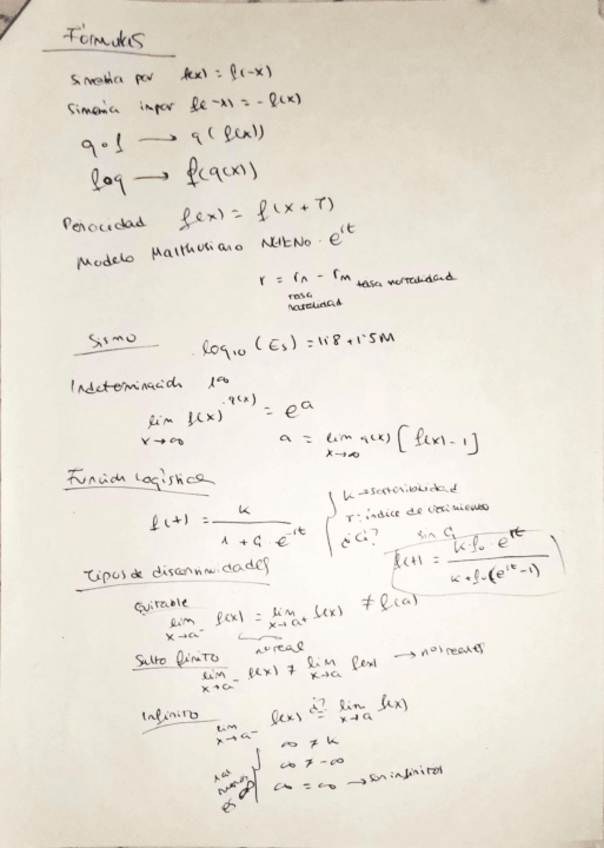 Fórmulas
Simetría par f(x) = f(-x)
Simetría impar f(-x) = - f(x)
g∘f → g(f(x))
f∘g → f(g(x))
Periocidad f(x) = f(x+T)
Modelo Malthusiano N(t)=No · e^rt
r = rn - rm tasa mortalidad
tasa
natalidad
Sismo log10 (Es) = 11'8 + 1'5M
Indeterminación 1^∞
lim f(x)^g(x) = e^a
x→∞ a = lim g(x) [f(x) - 1]
x→∞
Función Logística
f(t) = K / (1 + C₁ · e^-rt)
K → sostenibilidad
r: índice de crecimiento
¿C₁?
sin C₁
f(t) = K · f₀ · e^rt / (K + f₀ (e^rt - 1))
Tipos de discontinuidades
Evitable
lim x→a⁻ f(x) = lim x→a⁺ f(x) ≠ f(a)
nº real
Salto finito
lim x→a⁻ f(x) ≠ lim x→a f(x) → nos reales
Infinito
lim x→a⁻ f(x) ¿=? lim x→a f(x)
∞ ≠ k
∞ ≠ -∞
∞ = ∞ → son infinitos
menos
es ∞